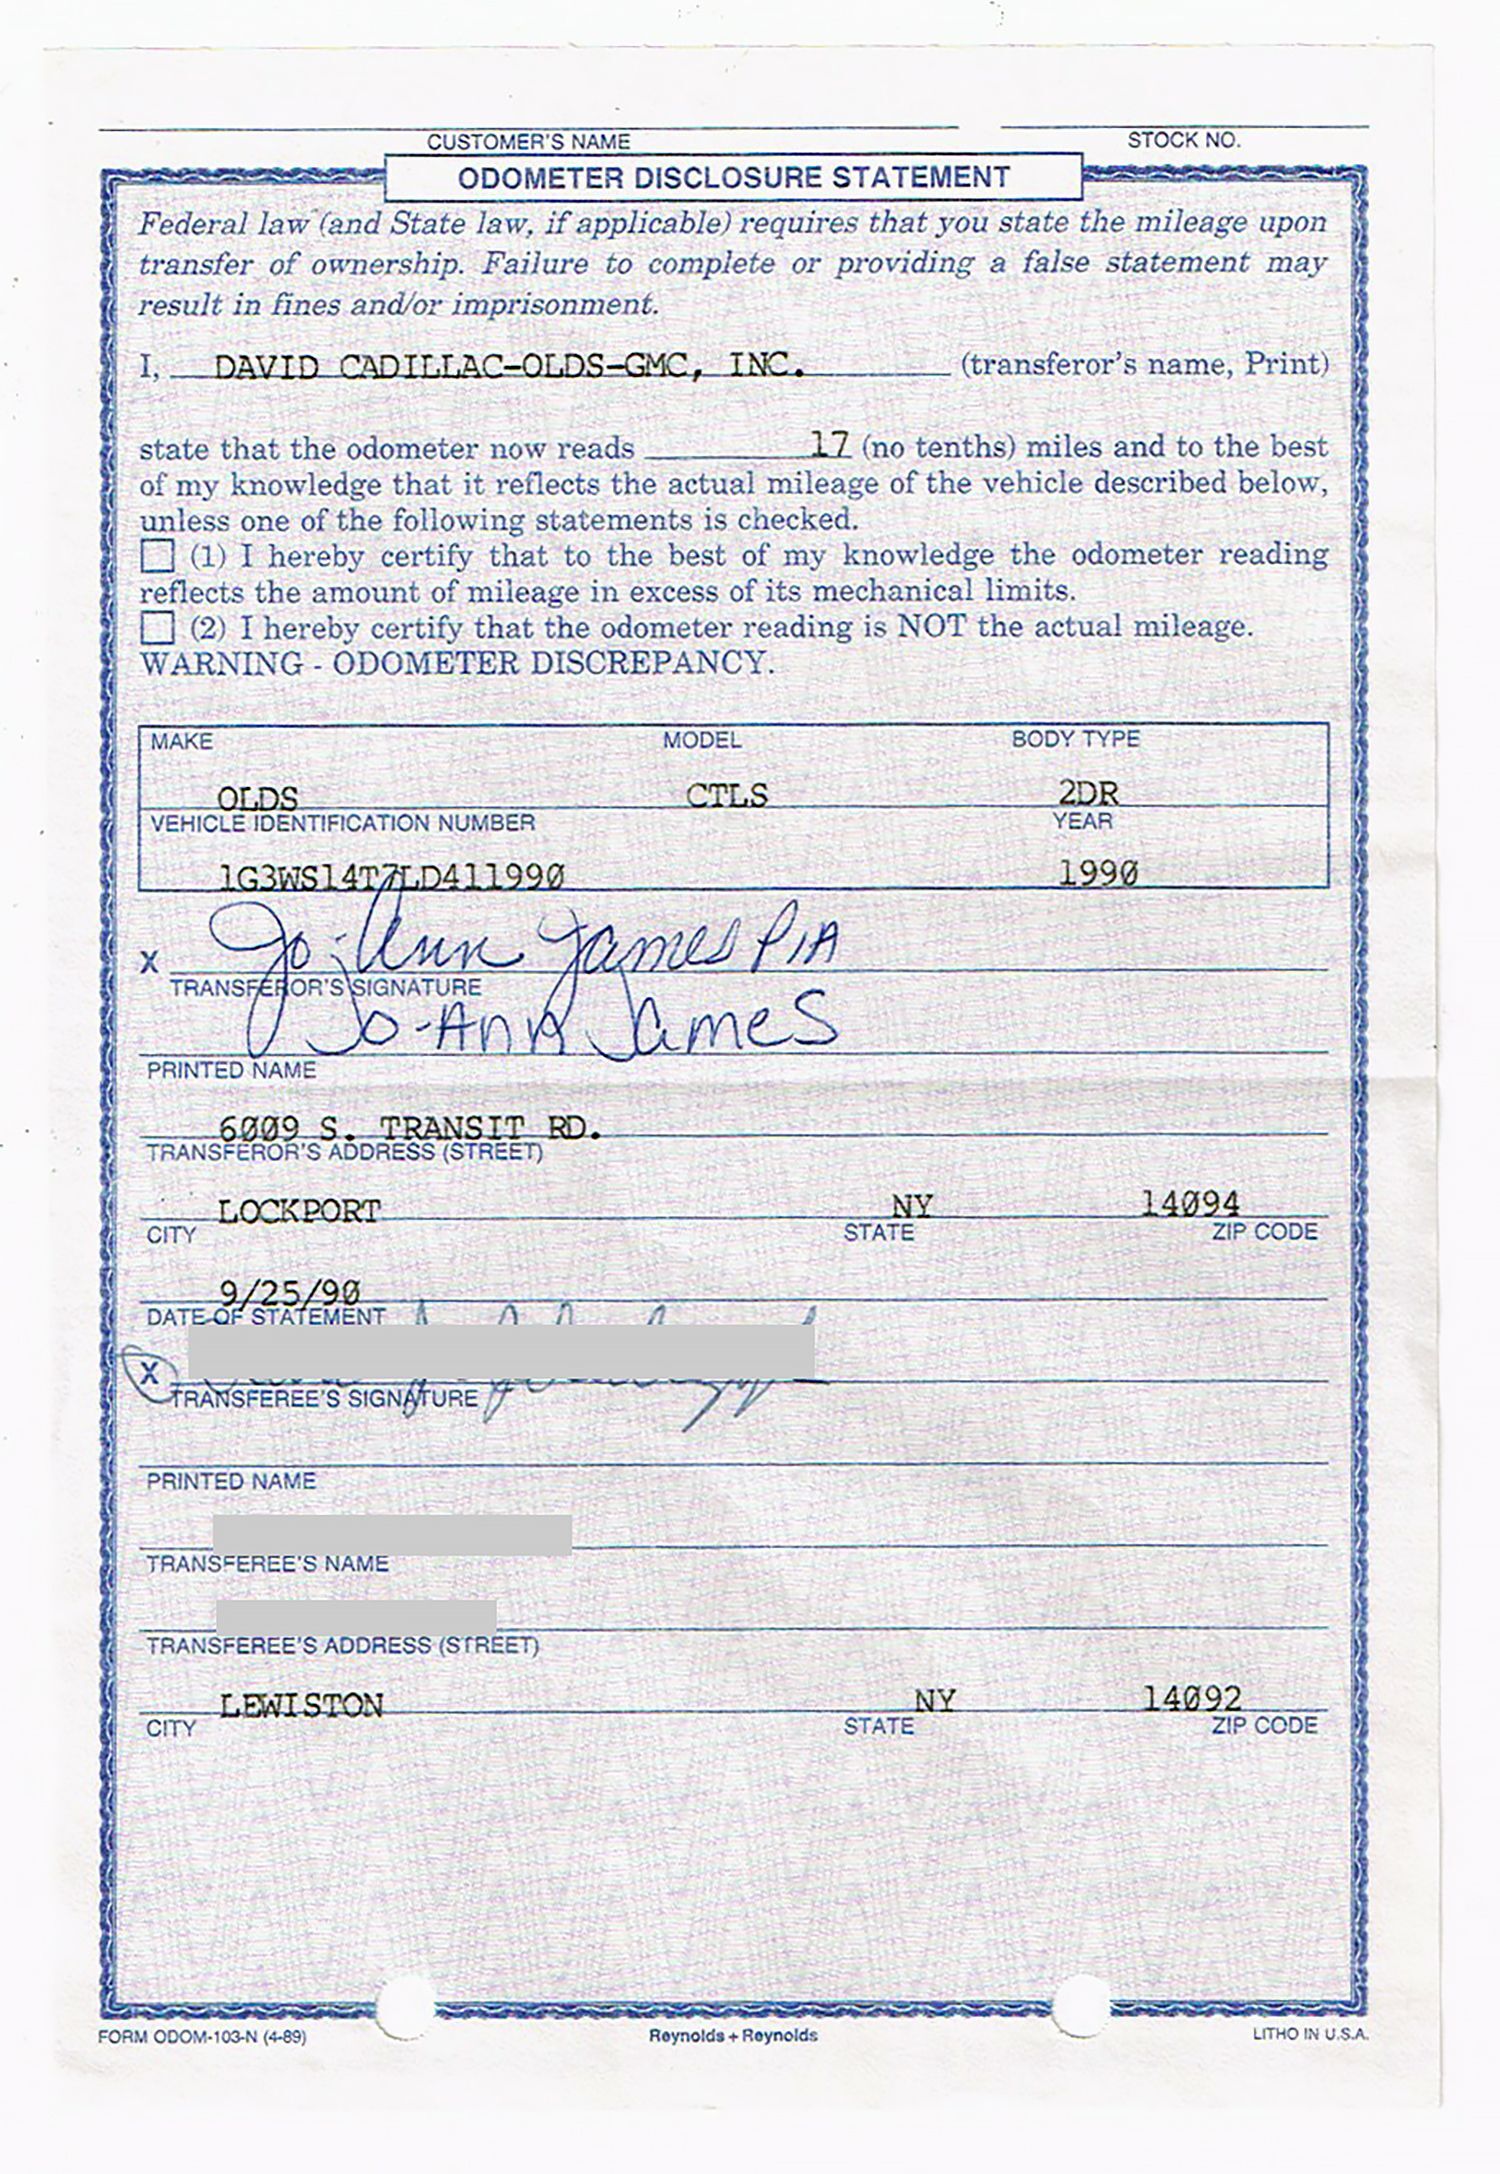 CUSTOMER'S NAME STOCK NO.
ODOMETER DISCLOSURE STATEMENT
Federal law (and State law, if applicable) requires that you state the mileage upon
transfer of ownership. Failure to complete or providing a false statement may
result in fines and/or imprisonment.
I, DAVID CADILLAC-OLDS-GMC, INC. (transferor's name, Print)
state that the odometer now reads 17 (no tenths) miles and to the best
of my knowledge that it reflects the actual mileage of the vehicle described below,
unless one of the following statements is checked.
(1) I hereby certify that to the best of my knowledge the odometer reading
reflects the amount of mileage in excess of its mechanical limits.
(2) I hereby certify that the odometer reading is NOT the actual mileage.
WARNING - ODOMETER DISCREPANCY.
MAKE MODEL BODY TYPE
OLDS CTLS 2DR
VEHICLE IDENTIFICATION NUMBER YEAR
1G3WS14T7LD411990 1990
X Jo-Ann James P/A
TRANSFEROR'S SIGNATURE
Jo-Ann James
PRINTED NAME
6009 S. TRANSIT RD.
TRANSFEROR'S ADDRESS (STREET)
LOCKPORT NY 14094
CITY STATE ZIP CODE
9/25/90
DATE OF STATEMENT
X
TRANSFEREE'S SIGNATURE
PRINTED NAME
TRANSFEREE'S NAME
TRANSFEREE'S ADDRESS (STREET)
LEWISTON NY 14092
CITY STATE ZIP CODE
FORM ODOM-103-N (4-89) Reynolds + Reynolds LITHO IN U.S.A.